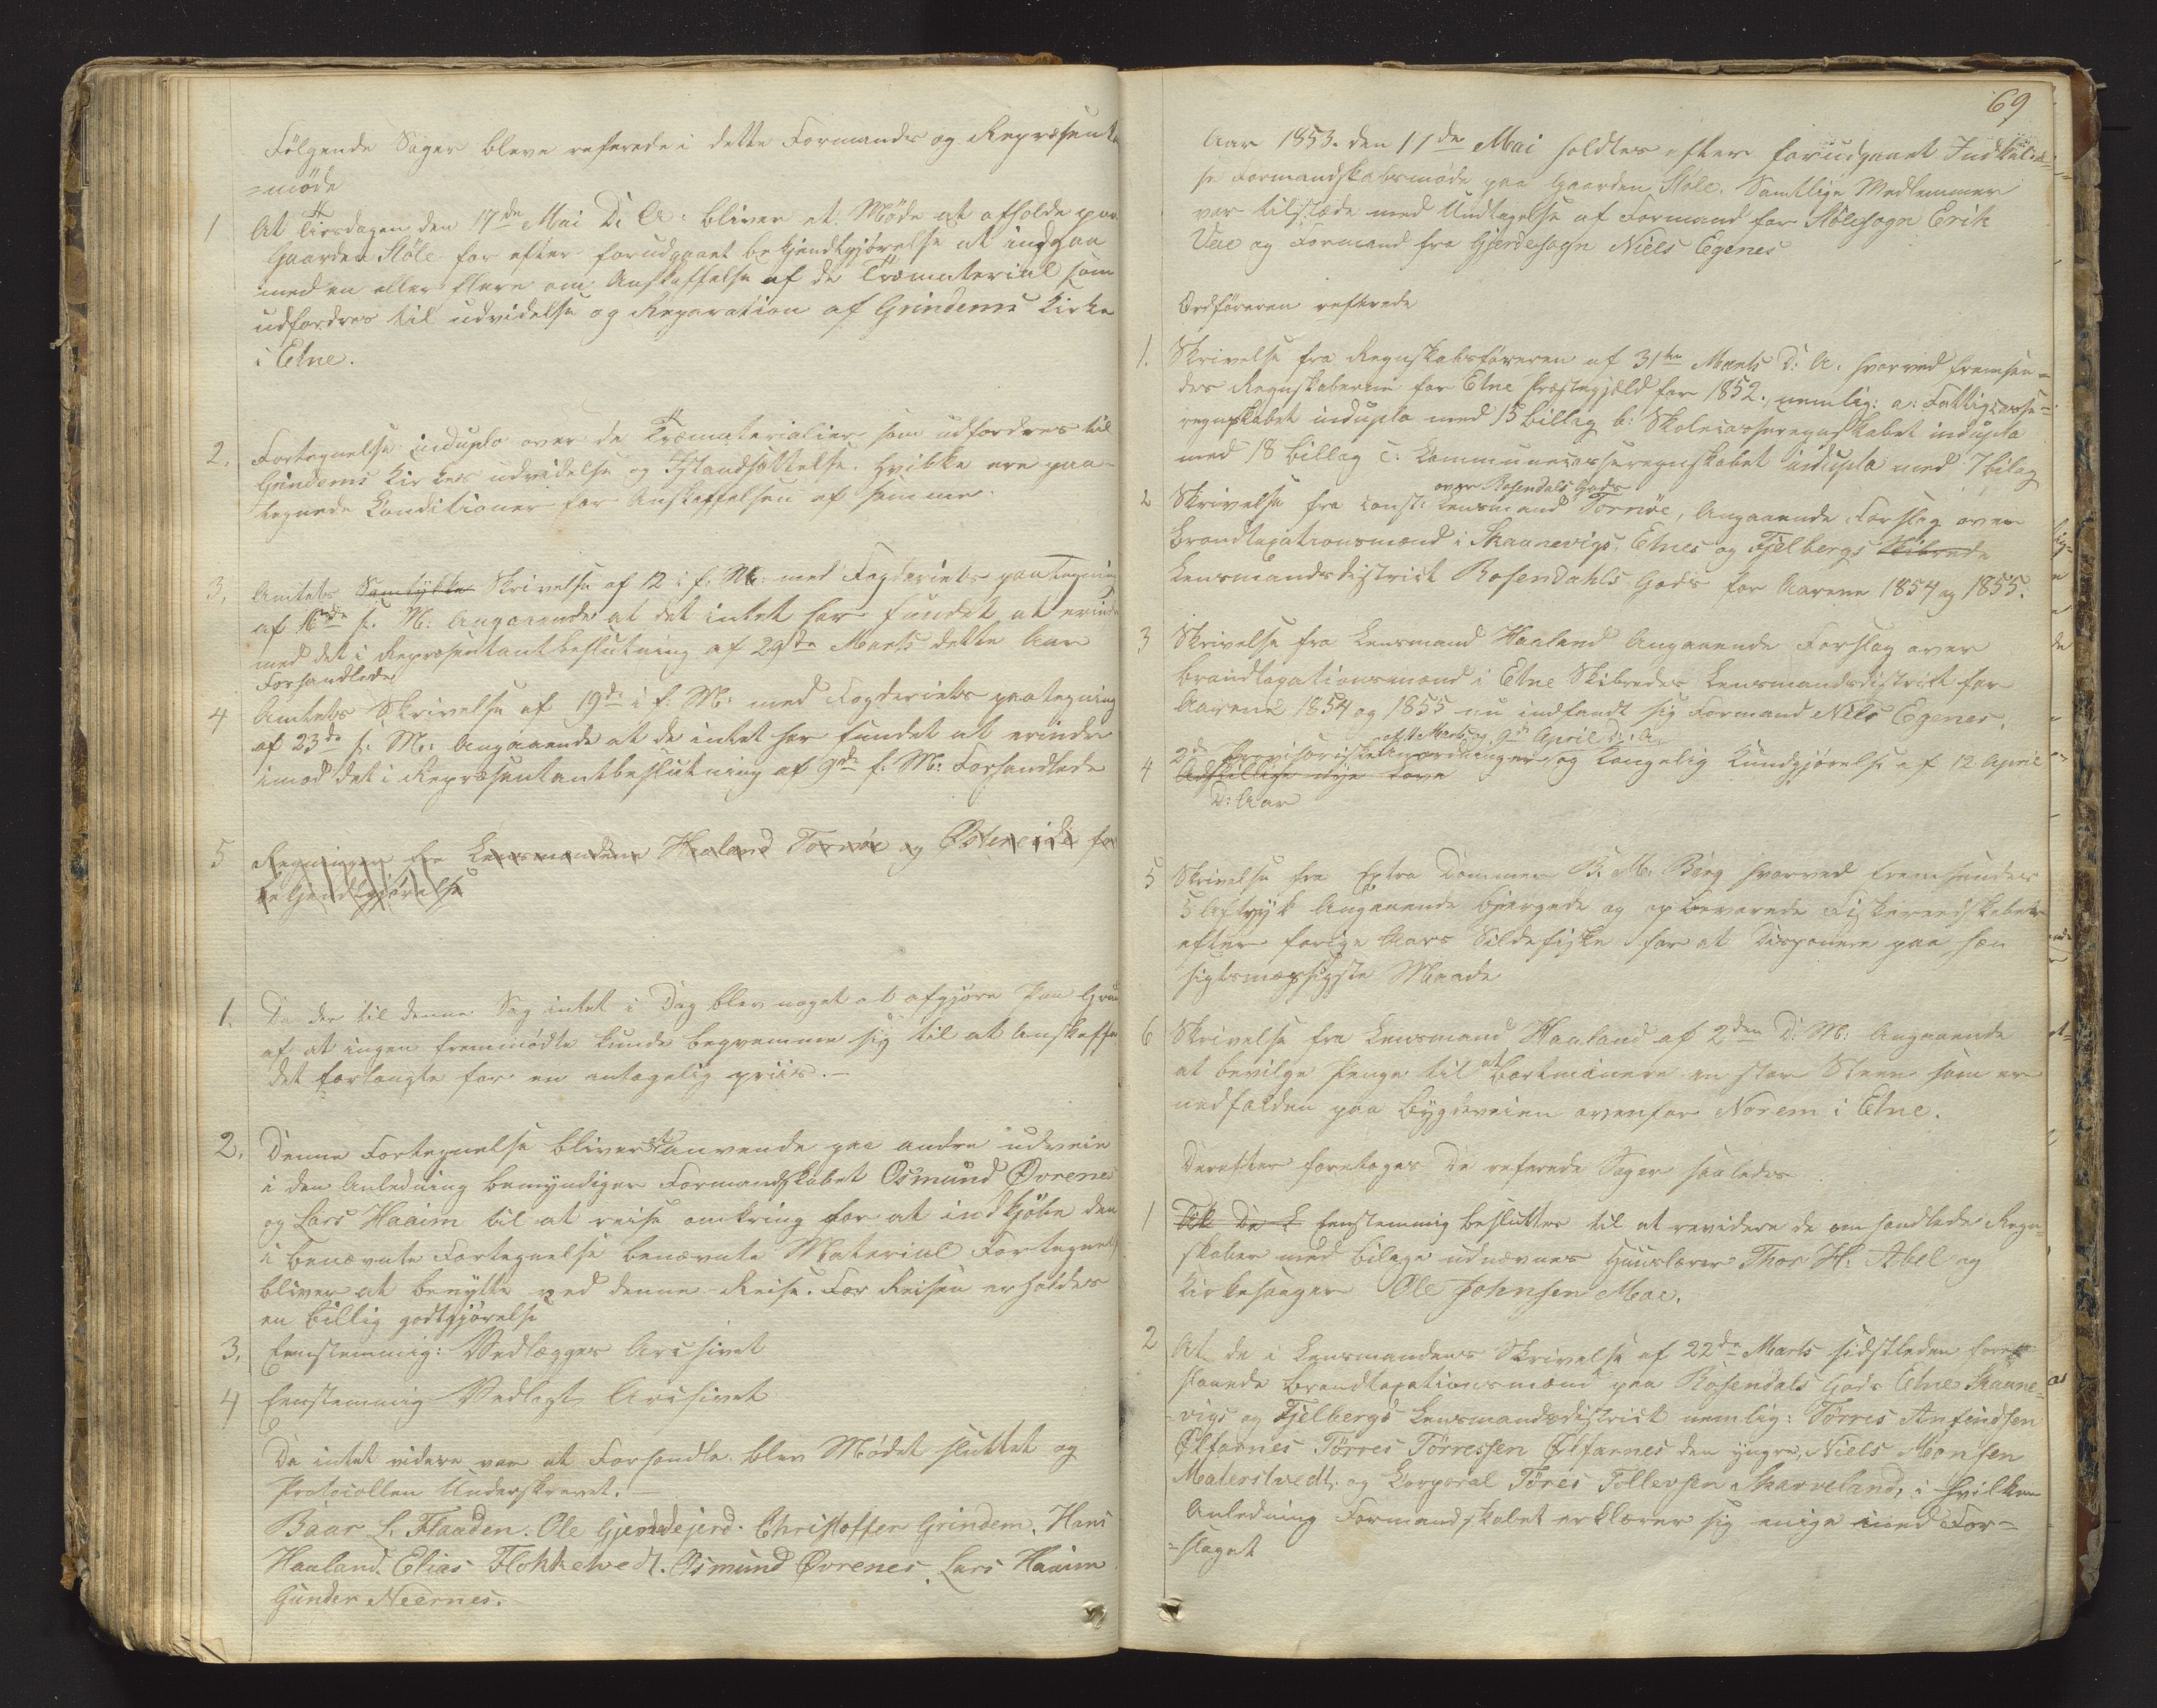 Følgende Sager bleve referede i dette Formands og Repræsent
=møde
1 At Tirsdagen den 17de Mai D: A: bliver et Møde at afholde paa
Gaarden Støle for efter forudgaaet bekjendtgjørelse at indgaa
med en eller flere om Anskaffelse af de Træmaterial som
udfordres til udvidelse og Reparation af Grindems Kirke
i Etne.
2. Fortegnelse induplo over de Træmaterialier som udfordres til
Grindems Kirkes udvidelse og Istandsættelse. hvilke ere paa-
tegnede Conditioner for Anskaffelsen af samme.
3. Amtets Samtykke Skrivelse af 12 i f. M: med Fogderiets paategning
af 16de s. M: Angaaende at det intet har fundet at erindre
med det i Repræsentantbeslutning af 29de Marts dette Aar
Forhandlede
4 Amtets Skrivelse af 19de i f: M: med Fogderiets paategning
af 23de s: M: Angaaende at de intet har fundet at erindre
imod det i Repræsentantbeslutning af 9de f. M: Forhandlede
5 Regninger fra Lensmændene Haaland Tornøe og Østereide for
bekjendtgjørelse
1. Da der til denne Sag intet i Dag blev noget at afgjøre paa Grund
af at ingen fremmødte kunde beqvemme sig til at Anskaffe
det forlangte for en antagelig priis.-
2. Denne Fortegnelse bliver at anvende paa andre udveie
i den Anledning bemyndiger Formandskabet Osmund Øvrenes
og Lars Haaim til at reise omkring for at indkjøbe den
i benævnte Fortegnelse benævnte Material Fortegnels
bliver at benytte ved denne Reise. For Reisen erholdes
en billig godtgjørelse
3. Eenstemmig: Vedlægges Archivet
4 Eenstemmig Vedlagt Archivet
Da intet videre var at Forhandle blev Mødet sluttet og
Protocollen Underskrevet.-
Baar L. Flaaden. Ole Gjerdejerd. Christoffer Grindem. Hans
Haaland. Elias Flokketvedt. Osmund Øvrenes. Lars Haaim
Gunder Neernes.
69
Aar 1853. den 11de Mai holdtes efter forudgaaet Indkaldel-
se Formandskabsmøde paa Gaarden Støle. Samtlige Medlemmer
var tilstæde med Undtagelse af Formand for Stølesogn Erik
Vee og Formand fra Gjerdesogn Niels Egenes
Ordføreren refterede
1. Skrivelse fra Regnskabsføreren af 31te Marts D: A. hvorved fremsen-
des Regnskaberne for Etne Præstegjeld for 1852., nemlig: a: Fattigcasse-
regnskabet indupla med 15 billag b: Skolecasseregnskabet indupla
med 18 billag c: Communecasseregnskabet indupla med 7 bilag
over Rosendals Gods
2 Skrivelse fra const: Lensmand Tornøe, Angaaende Forslag over
Brandtaxationsmænd i Skaanevigs, Etnes og Fjelbergs Skibrede
Lensmandsdistrict Rosendahls Gods for Aarene 1854 og 1855.
3 Skrivelse fra Lensmand Haaland Angaaende Forslag over
Brandtaxationsmænd i Etne Skibredes Lensmandsdistrikt for
Aarene 1854 og 1855 nu indfandt sig Formand Nils Egenes.
af 1 Marts og 9de April D: A.
2de Provisoriske Anordninger og Kongelig Kundgjørelse af 12 April
4 Adskillige nye Love
D: Aar
5 Skrivelse fra Extra Dommer B. M. Berg hvorved fremsendes
5 Aftryk Angaaende bjergede og opbevarede Fiskeredskaber
efter forige Aars Sildefiske for at Disponere paa hen
sigtsmæssigste Maade
6 Skrivelse fra Lensmand Haaland af 2den D: M: Angaaende
at bevilge Penge til at bortminere en stor Steen som er
nedfalden paa bygdeveien ovenfor Norem i Etne.
Derefter foretoges de referede Sager saaledes
1 Eenstemmig besluttes til at revidere de omhandlede Regn-
skaber med bilage udnævnes Huuslærer Thor H. Abel og
Kirkesanger Ole Johnsen Moe.
2 At de i Lensmandens Skrivelse af 22de Marts sidstleden fore
slaaede Brandtaxationsmænd paa Rosendals Gods Etne Skaane-
=vigs og Fjelbergs Lensmandsdistrict nemlig: Tørres Anfindsen
Ølfarnes Tørres Tørressen Ølfarnes den yngre, Niels Monsen
Materstvedt. og Corporal Töres Tollevsen Skarveland, i hvilken
Anledning Formandskabet erklærer sig enige med For=
=slaget